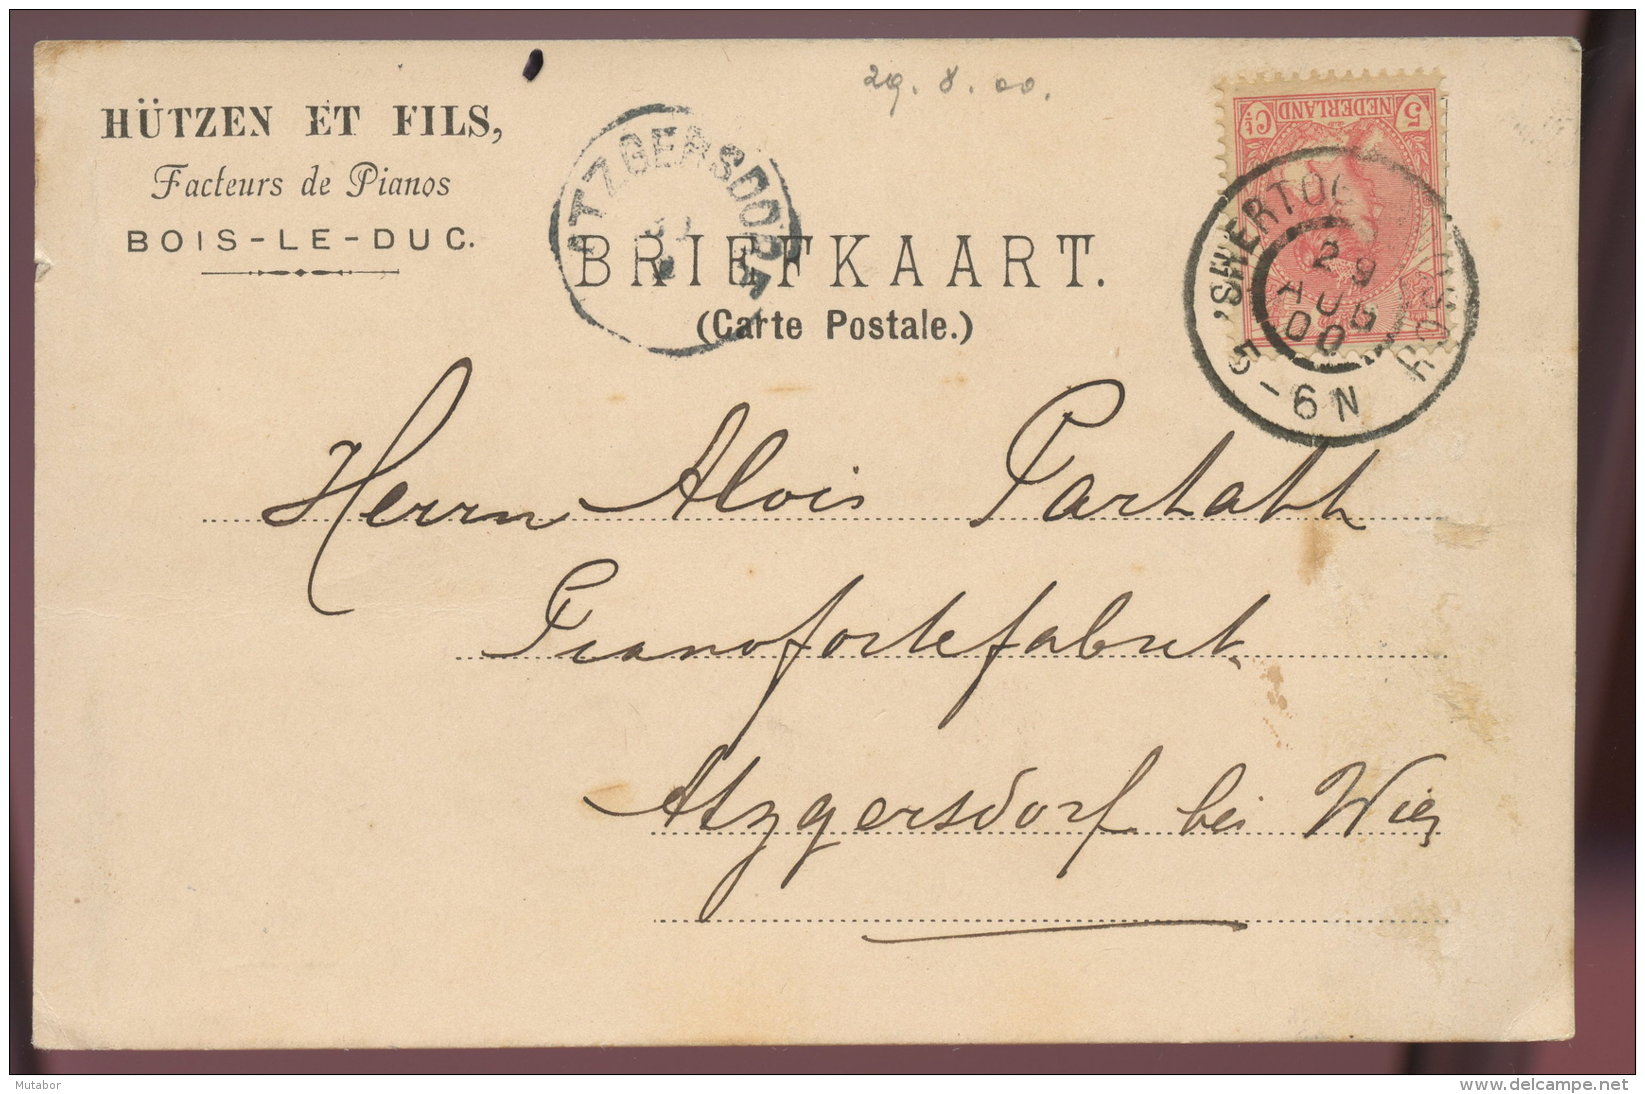 HÜTZEN ET FILS,
Facteurs de Pianos
BOIS-LE-DUC.
29.8.00.
ATZGERSDORF
BRIEFKAART.
(Carte Postale.)
NEDERLAND
5 Ct
'SHERTOG
29
AUG
00
5-6N
Herrn Alois
Pianofortefabrik.
Atzgersdorf bei Wien
Mutabor
delcampe.net